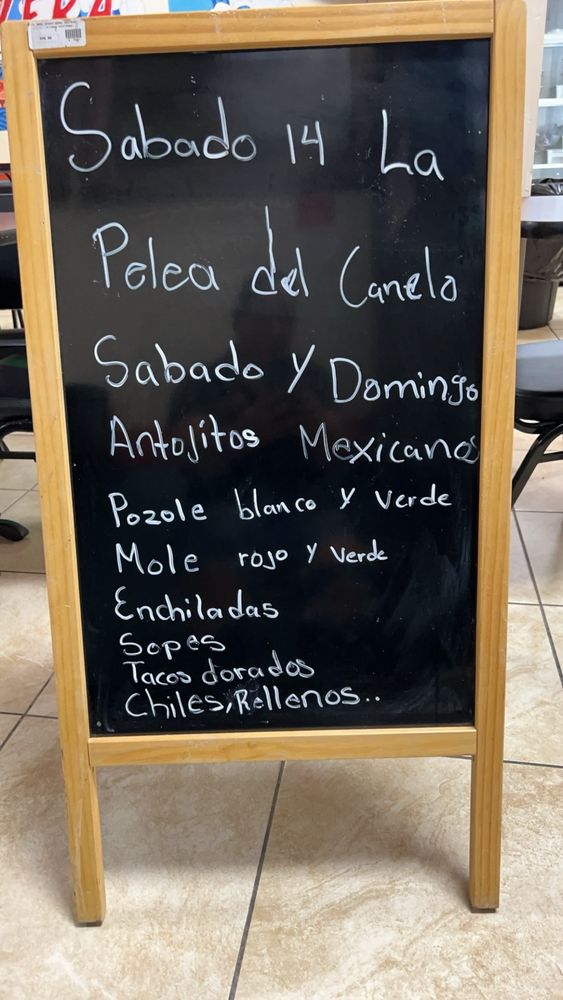 ERA
Sabado 14 La
Pelea del Canelo
Sabado Y Domingo
Antojitos Mexicanos
Pozole blanco y verde
Mole rojo y verde
Enchiladas
Sopes
Tacos dorados
Chiles, Rellenos..